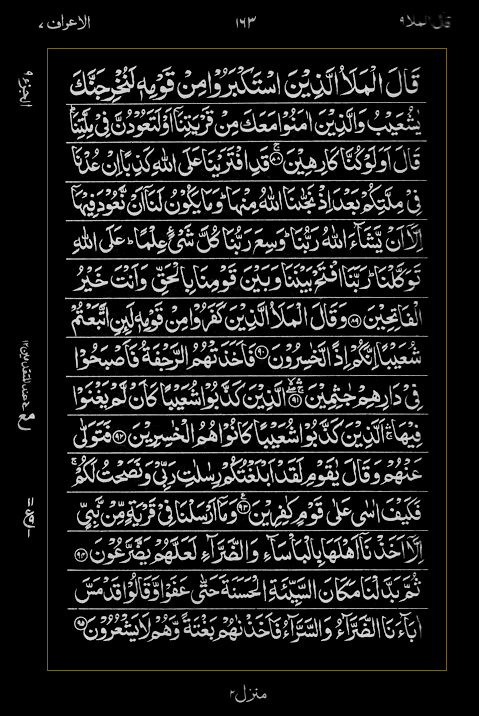 قال الملا ٩
١٦٣
الاعراف ٧
قَالَ الْمَلَاُ الَّذِيْنَ اسْتَكْبَرُوْا مِنْ قَوْمِهٖ لَنُخْرِجَنَّكَ
يٰشُعَيْبُ وَالَّذِيْنَ اٰمَنُوْا مَعَكَ مِنْ قَرْيَتِنَاۤ اَوْ لَتَعُوْدُنَّ فِيْ مِلَّتِنَاؕ
قَالَ اَوَلَوْ كُنَّا كَارِهِيْنَ ۚ﴿٨٨﴾ قَدِ افْتَرَيْنَا عَلَى اللّٰهِ كَذِبًا اِنْ عُدْنَا
فِيْ مِلَّتِكُمْ بَعْدَ اِذْ نَجّٰىنَا اللّٰهُ مِنْهَاؕ وَمَا يَكُوْنُ لَنَاۤ اَنْ نَّعُوْدَ فِيْهَاۤ
اِلَّاۤ اَنْ يَّشَآءَ اللّٰهُ رَبُّنَاؕ وَسِعَ رَبُّنَا كُلَّ شَيْءٍ عِلْمًاؕ عَلَى اللّٰهِ
تَوَكَّلْنَاؕ رَبَّنَا افْتَحْ بَيْنَنَا وَبَيْنَ قَوْمِنَا بِالْحَقِّ وَاَنْتَ خَيْرُ
الْفَاتِحِيْنَ ﴿٨٩﴾ وَقَالَ الْمَلَاُ الَّذِيْنَ كَفَرُوْا مِنْ قَوْمِهٖ لَىِٕنِ اتَّبَعْتُمْ
شُعَيْبًا اِنَّكُمْ اِذًا لَّخٰسِرُوْنَ ﴿٩٠﴾ فَاَخَذَتْهُمُ الرَّجْفَةُ فَاَصْبَحُوْا
فِيْ دَارِهِمْ جٰثِمِيْنَ ﴿٩١﴾ الَّذِيْنَ كَذَّبُوْا شُعَيْبًا كَاَنْ لَّمْ يَغْنَوْا
فِيْهَا ۚ اَلَّذِيْنَ كَذَّبُوْا شُعَيْبًا كَانُوْا هُمُ الْخٰسِرِيْنَ ﴿٩٢﴾ فَتَوَلّٰى
عَنْهُمْ وَقَالَ يٰقَوْمِ لَقَدْ اَبْلَغْتُكُمْ رِسٰلٰتِ رَبِّيْ وَنَصَحْتُ لَكُمْ ۚ
فَكَيْفَ اٰسٰى عَلٰى قَوْمٍ كٰفِرِيْنَ ﴿٩٣﴾ وَمَاۤ اَرْسَلْنَا فِيْ قَرْيَةٍ مِّنْ نَّبِيٍّ
اِلَّاۤ اَخَذْنَاۤ اَهْلَهَا بِالْبَاْسَآءِ وَالضَّرَّآءِ لَعَلَّهُمْ يَضَّرَّعُوْنَ ﴿٩٤﴾
ثُمَّ بَدَّلْنَا مَكَانَ السَّيِّئَةِ الْحَسَنَةَ حَتّٰى عَفَوْا وَّقَالُوْا قَدْ مَسَّ
اٰبَآءَنَا الضَّرَّآءُ وَالسَّرَّآءُ فَاَخَذْنٰهُمْ بَغْتَةً وَّهُمْ لَا يَشْعُرُوْنَ ﴿٩٥﴾
الجزء ٩
منزل ٢